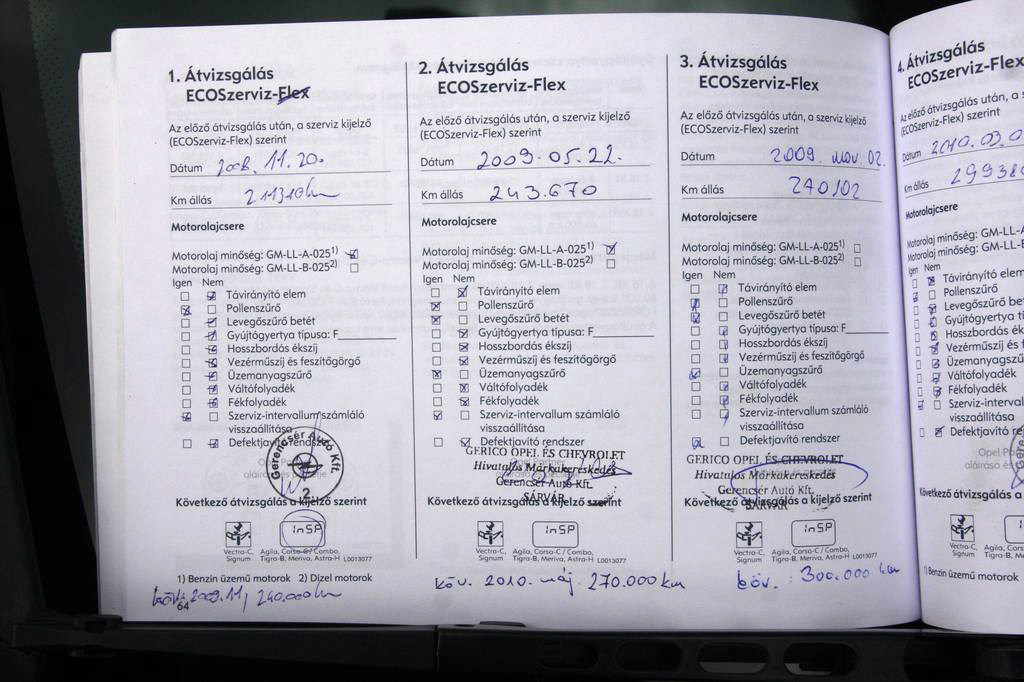 1. Átvizsgálás
ECOSzerviz-Flex
Az előző átvizsgálás után, a szerviz kijelző
(ECOSzerviz-Flex) szerint
Dátum 2008. 11. 20.
Km állás
Motorolajcsere
Motorolaj minőség: GM-LL-A-025¹)
Motorolaj minőség: GM-LL-B-025²)
Igen Nem
Távirányító elem
Pollenszűrő
Levegőszűrő betét
Gyújtógyertya típusa: F
Hosszbordás ékszíj
Vezérműszíj és feszítőgörgő
Üzemanyagszűrő
Váltófolyadék
Fékfolyadék
Szerviz-intervallum számláló
visszaállítása
Defektjavító rendszer
Gerencsér Autó Kft.
2
Következő átvizsgálás a kijelző szerint
InSP
Vectra-C, Signum
Agila, Corsa-C/Combo,
Tigra-B, Meriva, Astra-H L0013077
1) Benzin üzemű motorok 2) Dízel motorok
köv. 2009.11, 240.000km
64
2. Átvizsgálás
ECOSzerviz-Flex
Az előző átvizsgálás után, a szerviz kijelző
(ECOSzerviz-Flex) szerint
Dátum 2009.05.22.
Km állás 243.670
Motorolajcsere
Motorolaj minőség: GM-LL-A-025¹)
Motorolaj minőség: GM-LL-B-025²)
Igen Nem
Távirányító elem
Pollenszűrő
Levegőszűrő betét
Gyújtógyertya típusa: F
Hosszbordás ékszíj
Vezérműszíj és feszítőgörgő
Üzemanyagszűrő
Váltófolyadék
Fékfolyadék
Szerviz-intervallum számláló
visszaállítása
Defektjavító rendszer
GERICO OPEL ÉS CHEVROLET
Hivatalos Márkakereskedés
Gerencsér Autó Kft.
SÁRVÁR
Következő átvizsgálás a kijelző szerint
InSP
Vectra-C, Signum
Agila, Corsa-C/Combo,
Tigra-B, Meriva, Astra-H L0013077
köv. 2010. máj. 270.000 km
3. Átvizsgálás
ECOSzerviz-Flex
Az előző átvizsgálás után, a szerviz kijelző
(ECOSzerviz-Flex) szerint
Dátum 2009. nov. 02.
Km állás 270102
Motorolajcsere
Motorolaj minőség: GM-LL-A-025¹)
Motorolaj minőség: GM-LL-B-025²)
Igen Nem
Távirányító elem
Pollenszűrő
Levegőszűrő betét
Gyújtógyertya típusa: F
Hosszbordás ékszíj
Vezérműszíj és feszítőgörgő
Üzemanyagszűrő
Váltófolyadék
Fékfolyadék
Szerviz-intervallum számláló
visszaállítása
Defektjavító rendszer
GERICO OPEL ÉS CHEVROLET
Hivatalos Márkakereskedés
Gerencsér Autó Kft.
SÁRVÁR
Következő átvizsgálás a kijelző szerint
InSP
Vectra-C, Signum
Agila, Corsa-C/Combo,
Tigra-B, Meriva, Astra-H L0013077
köv.: 300.000 km
4. Átvizsgálás
ECOSzerviz-Flex
Az előző átvizsgálás után, a s
(ECOSzerviz-Flex) szerint
Dátum 2010.03.0
Km állás 29938
Motorolajcsere
Motorolaj minőség: GM-LL-A
Motorolaj minőség: GM-LL-B
Igen Nem
Távirányító elem
Pollenszűrő
Levegőszűrő betét
Gyújtógyertya tí
Hosszbordás ék
Vezérműszíj és
Üzemanyagszű
Váltófolyadék
Fékfolyadék
Szerviz-interval
visszaállítása
Defektjavító re
Opel Pa
aláírása és
Következő átvizsgálás a
Vectra-C, Signum
1) Benzin üzemű motorok